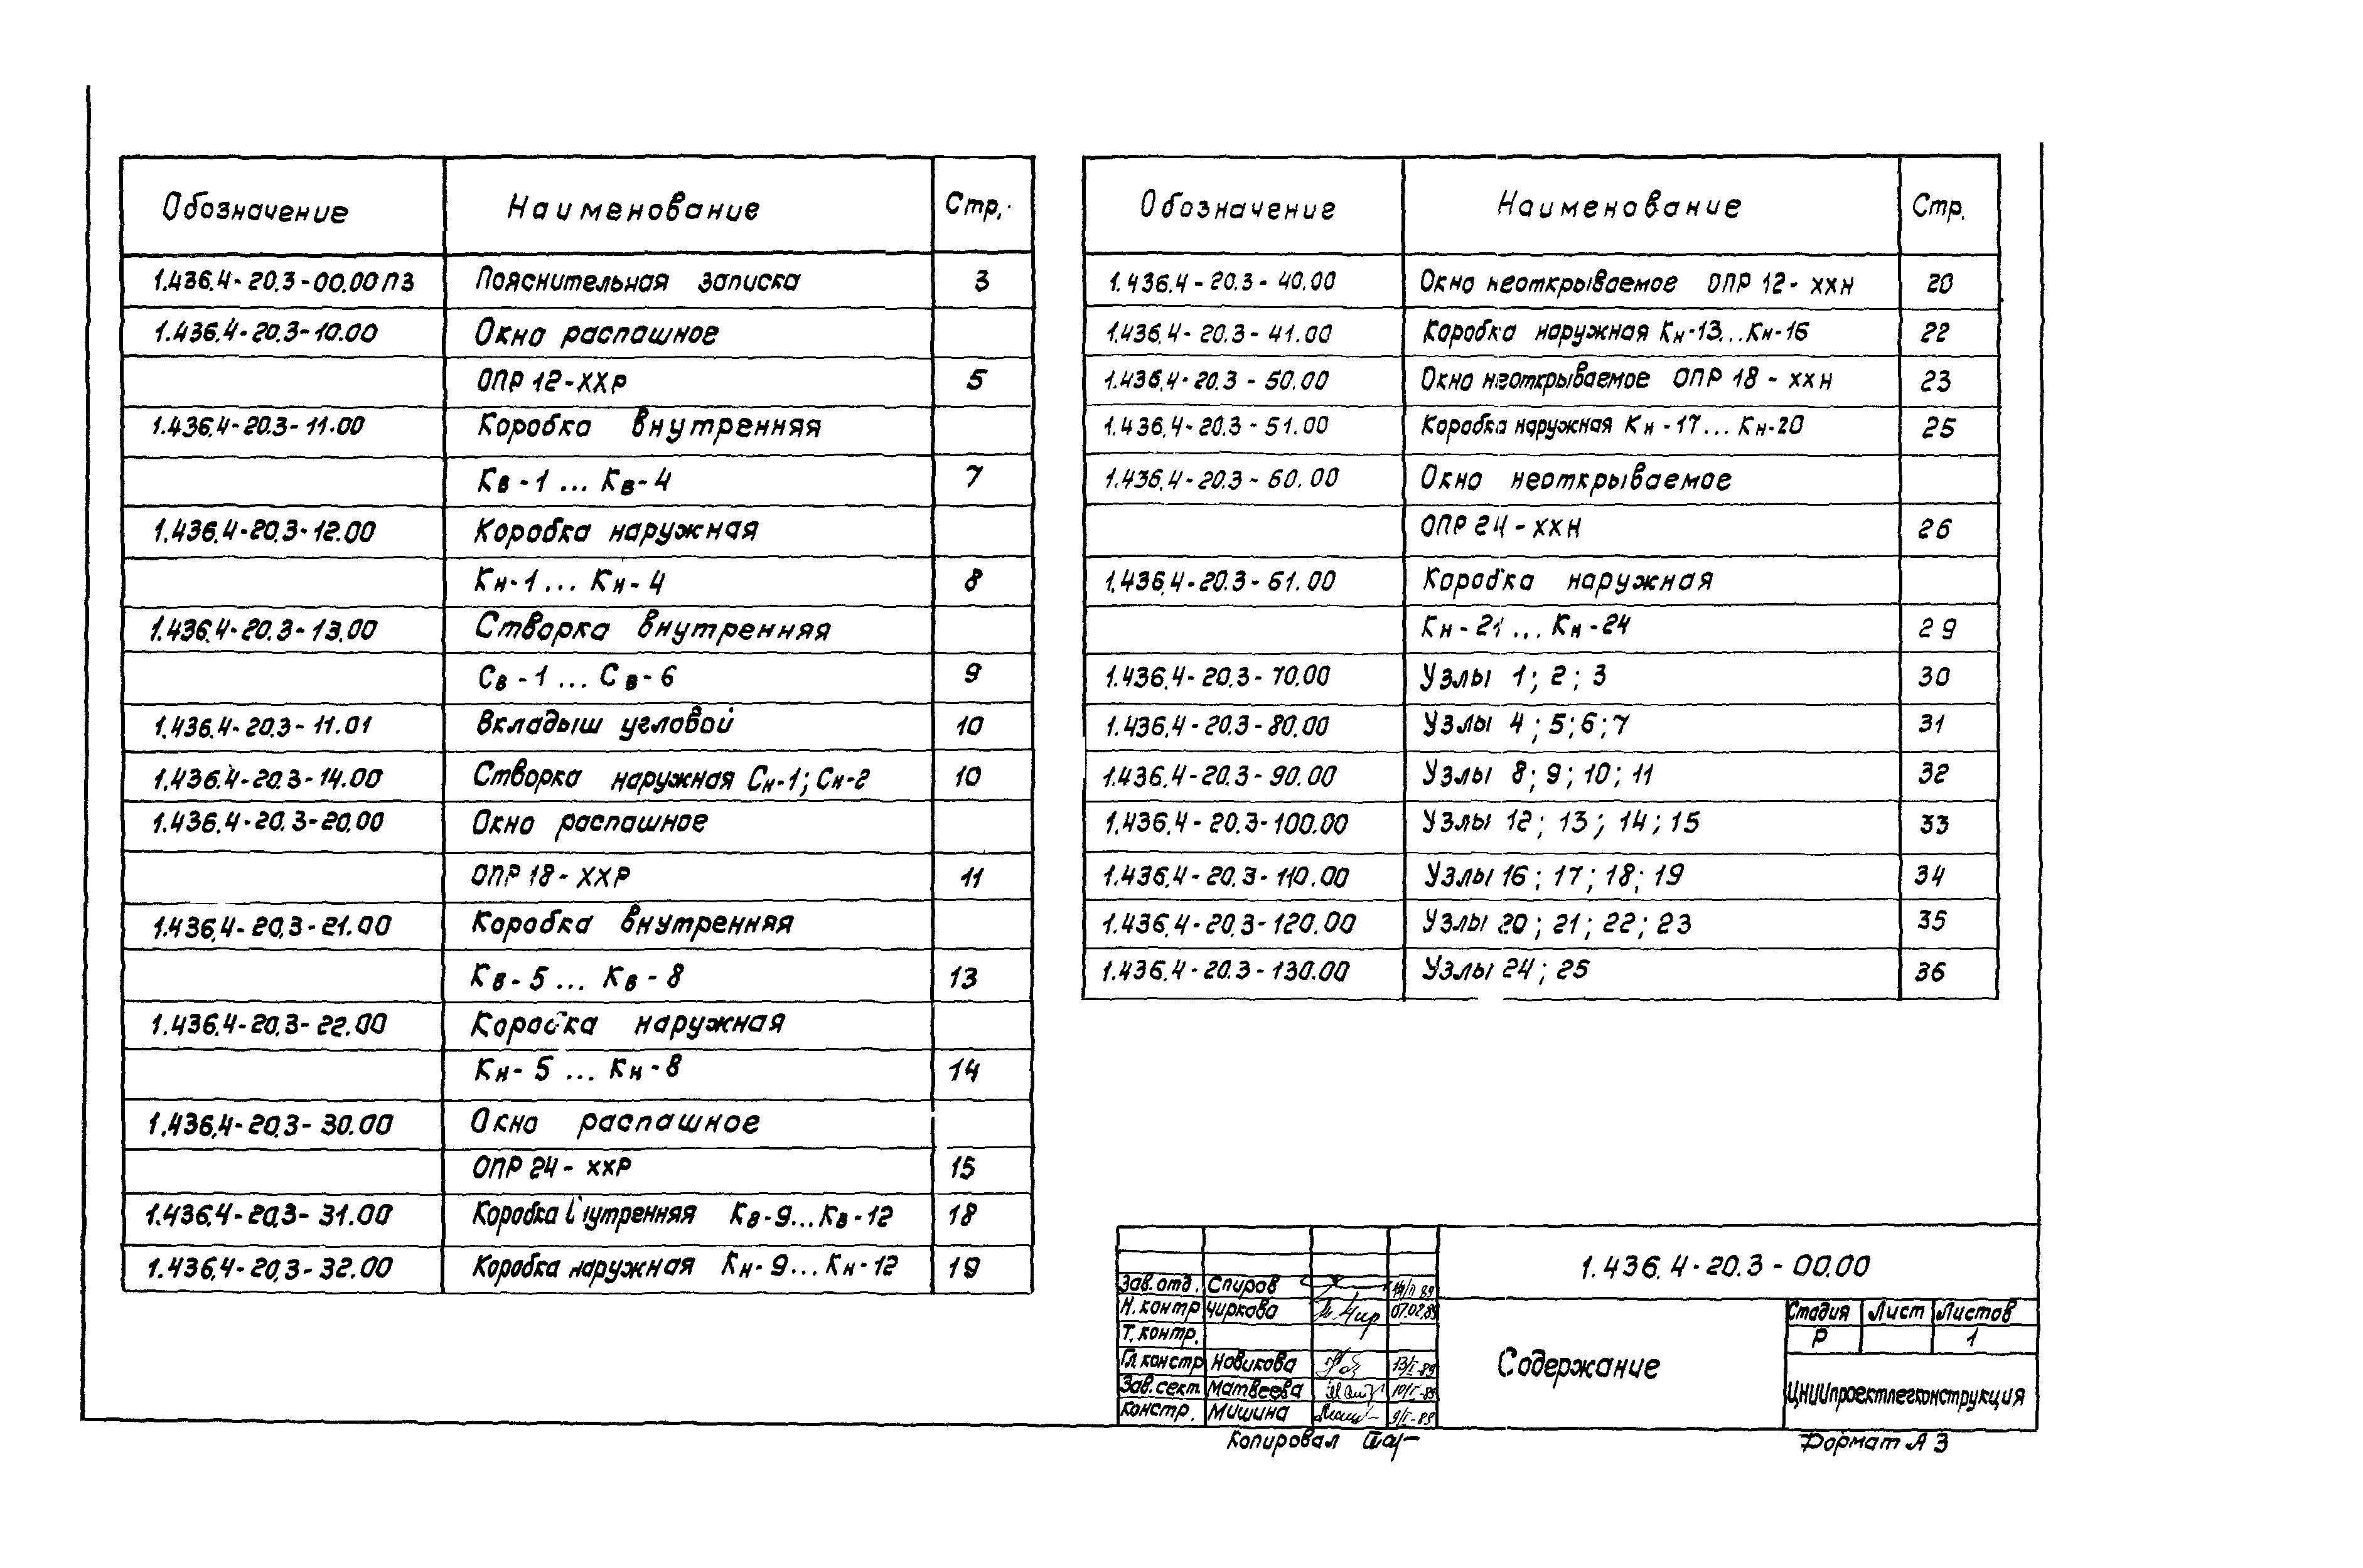 Обозначение Наименование Стр.
1.436.4-20.3-00.00ПЗ Пояснительная записка 3
1.436.4-20.3-10.00 Окно распашное
ОПР 12-ХХР 5
1.436.4-20.3-11.00 Коробка внутренняя
Кв-1 ... Кв-4 7
1.436.4-20.3-12.00 Коробка наружная
Кн-1 ... Кн-4 8
1.436.4-20.3-13.00 Створка внутренняя
Св-1 ... Св-6 9
1.436.4-20.3-11.01 Вкладыш угловой 10
1.436.4-20.3-14.00 Створка наружная Сн-1; Сн-2 10
1.436.4-20.3-20.00 Окно распашное
ОПР 18-ХХР 11
1.436.4-20.3-21.00 Коробка внутренняя
Кв-5 ... Кв-8 13
1.436.4-20.3-22.00 Коробка наружная
Кн-5 ... Кн-8 14
1.436.4-20.3-30.00 Окно распашное
ОПР 24-ХХР 15
1.436.4-20.3-31.00 Коробка внутренняя Кв-9...Кв-12 18
1.436.4-20.3-32.00 Коробка наружная Кн-9...Кн-12 19
Обозначение Наименование Стр.
1.436.4-20.3-40.00 Окно неоткрываемое ОПР 12-ХХН 20
1.436.4-20.3-41.00 Коробка наружная Кн-13...Кн-16 22
1.436.4-20.3-50.00 Окно неоткрываемое ОПР 18-ХХН 23
1.436.4-20.3-51.00 Коробка наружная Кн-17...Кн-20 25
1.436.4-20.3-60.00 Окно неоткрываемое
ОПР 24-ХХН 26
1.436.4-20.3-61.00 Коробка наружная
Кн-21 ... Кн-24 29
1.436.4-20.3-70.00 Узлы 1; 2; 3 30
1.436.4-20.3-80.00 Узлы 4; 5; 6; 7 31
1.436.4-20.3-90.00 Узлы 8; 9; 10; 11 32
1.436.4-20.3-100.00 Узлы 12; 13; 14; 15 33
1.436.4-20.3-110.00 Узлы 16; 17; 18; 19 34
1.436.4-20.3-120.00 Узлы 20; 21; 22; 23 35
1.436.4-20.3-130.00 Узлы 24; 25 36
1.436.4-20.3-00.00
Зав. отд. Спиров
Н. контр Чиркова 07.02.89
Т. контр.
Гл. констр Новикова 13/II-89
Зав. сект. Матвеева
Констр. Мишина
Содержание
Стадия Лист Листов
Р 1
ЦНИИпроектлегконструкция
Копировал
Формат А3